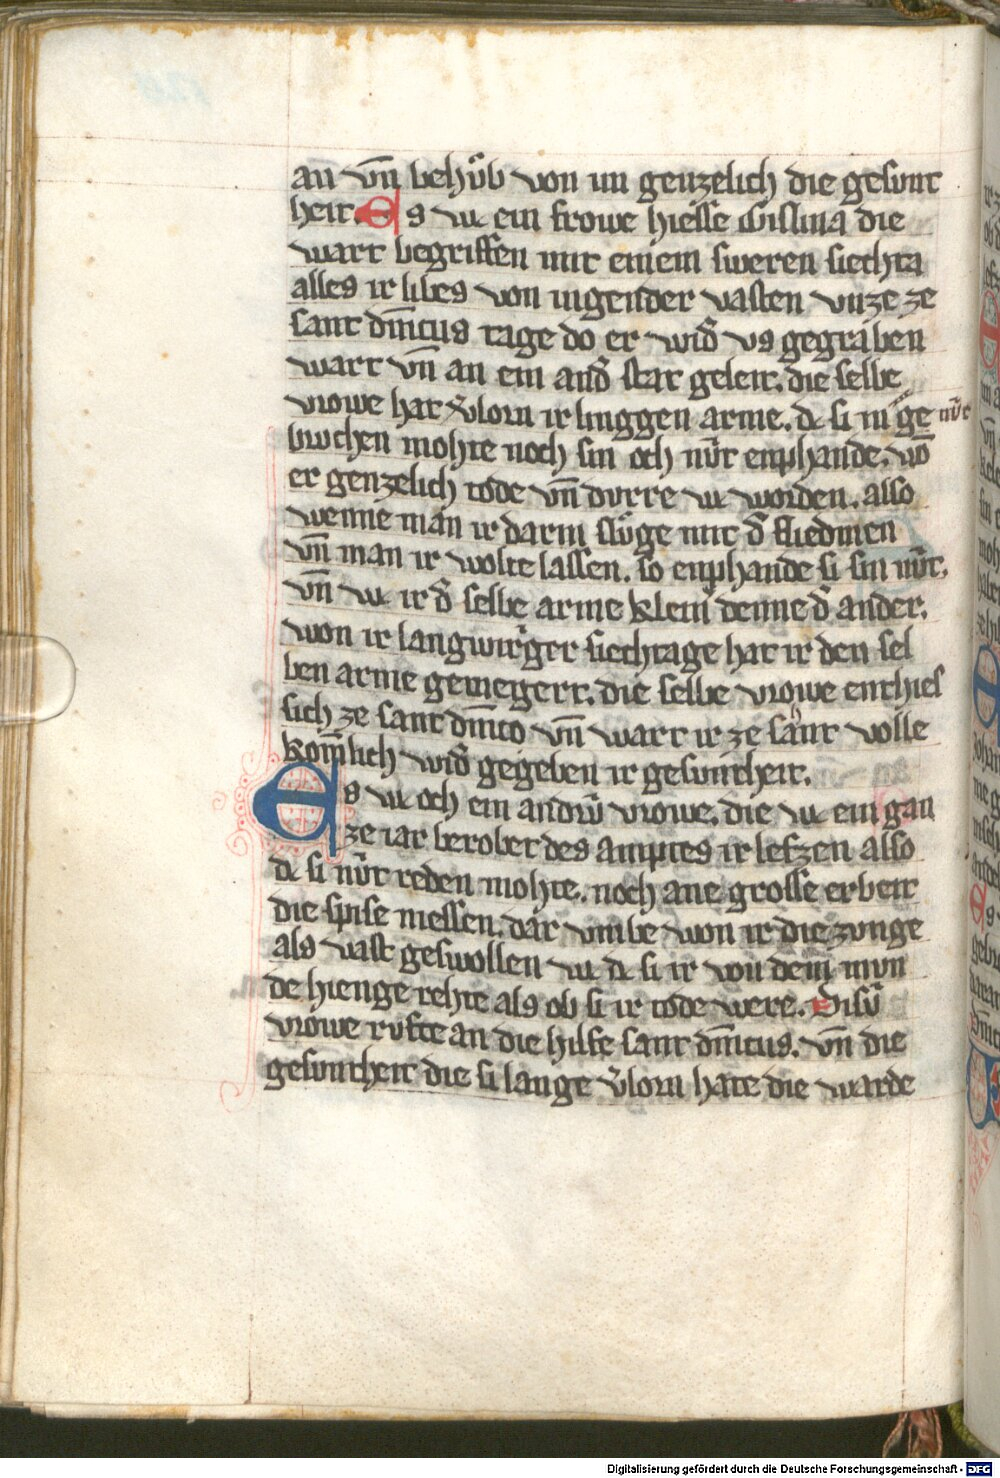 an vn̄ behůb von im genzelich die gesunt
heit. Es wc ein frowe hiesse Gislina die
wart begriffen mit einem sweren siechta
alles ir libes von ingender vasten vnze ze
sant dm̄icus tage do er wid͛ vs gegraben
wart vn̄ an ein and͛ stat geleit. die selbe
vrowe hat v͛lorn ir linggen arme. dc si in ge nv̂t
bruchen mohte noch sin och nv̂t enphande. wō
er genzelich tode vn̄ durre wc worden. also
wenne man ir darin slůge mit d͛ fliedmen
vn̄ man ir wolte lassen. so enphande si sin nv̂t.
vn̄ wc ir d͛ selbe arme kleiń denne d͛ ander.
won ir langwirͥger siechtage hat ir den sel
ben arme gemegert. die selbe vrowe enthies
sich ze sant dm̄ico vn̄ wart ir ze sa hant volle
kom̄lich wid͛ gegeben ir gesuntheit.
Es wc och ein andrv̂ vrowe. die wc ein gan
ze iar berobet des amptes ir lefzen also
dc si nv̂t reden mohte. noch ane grosse erbeit
die spise niessen. dar vmbe won ir die zunge
als vast geswollen wc dc si ir von dem mun
de hienge rehte als ob si ir tode were. Disv̂
vrowe rufte an die hilfe sant dm̄icus. vn̄ die
gesuntheit die si lange v͛lorn hate die warde
Digitalisierung gefördert durch die Deutsche Forschungsgemeinschaft - DFG